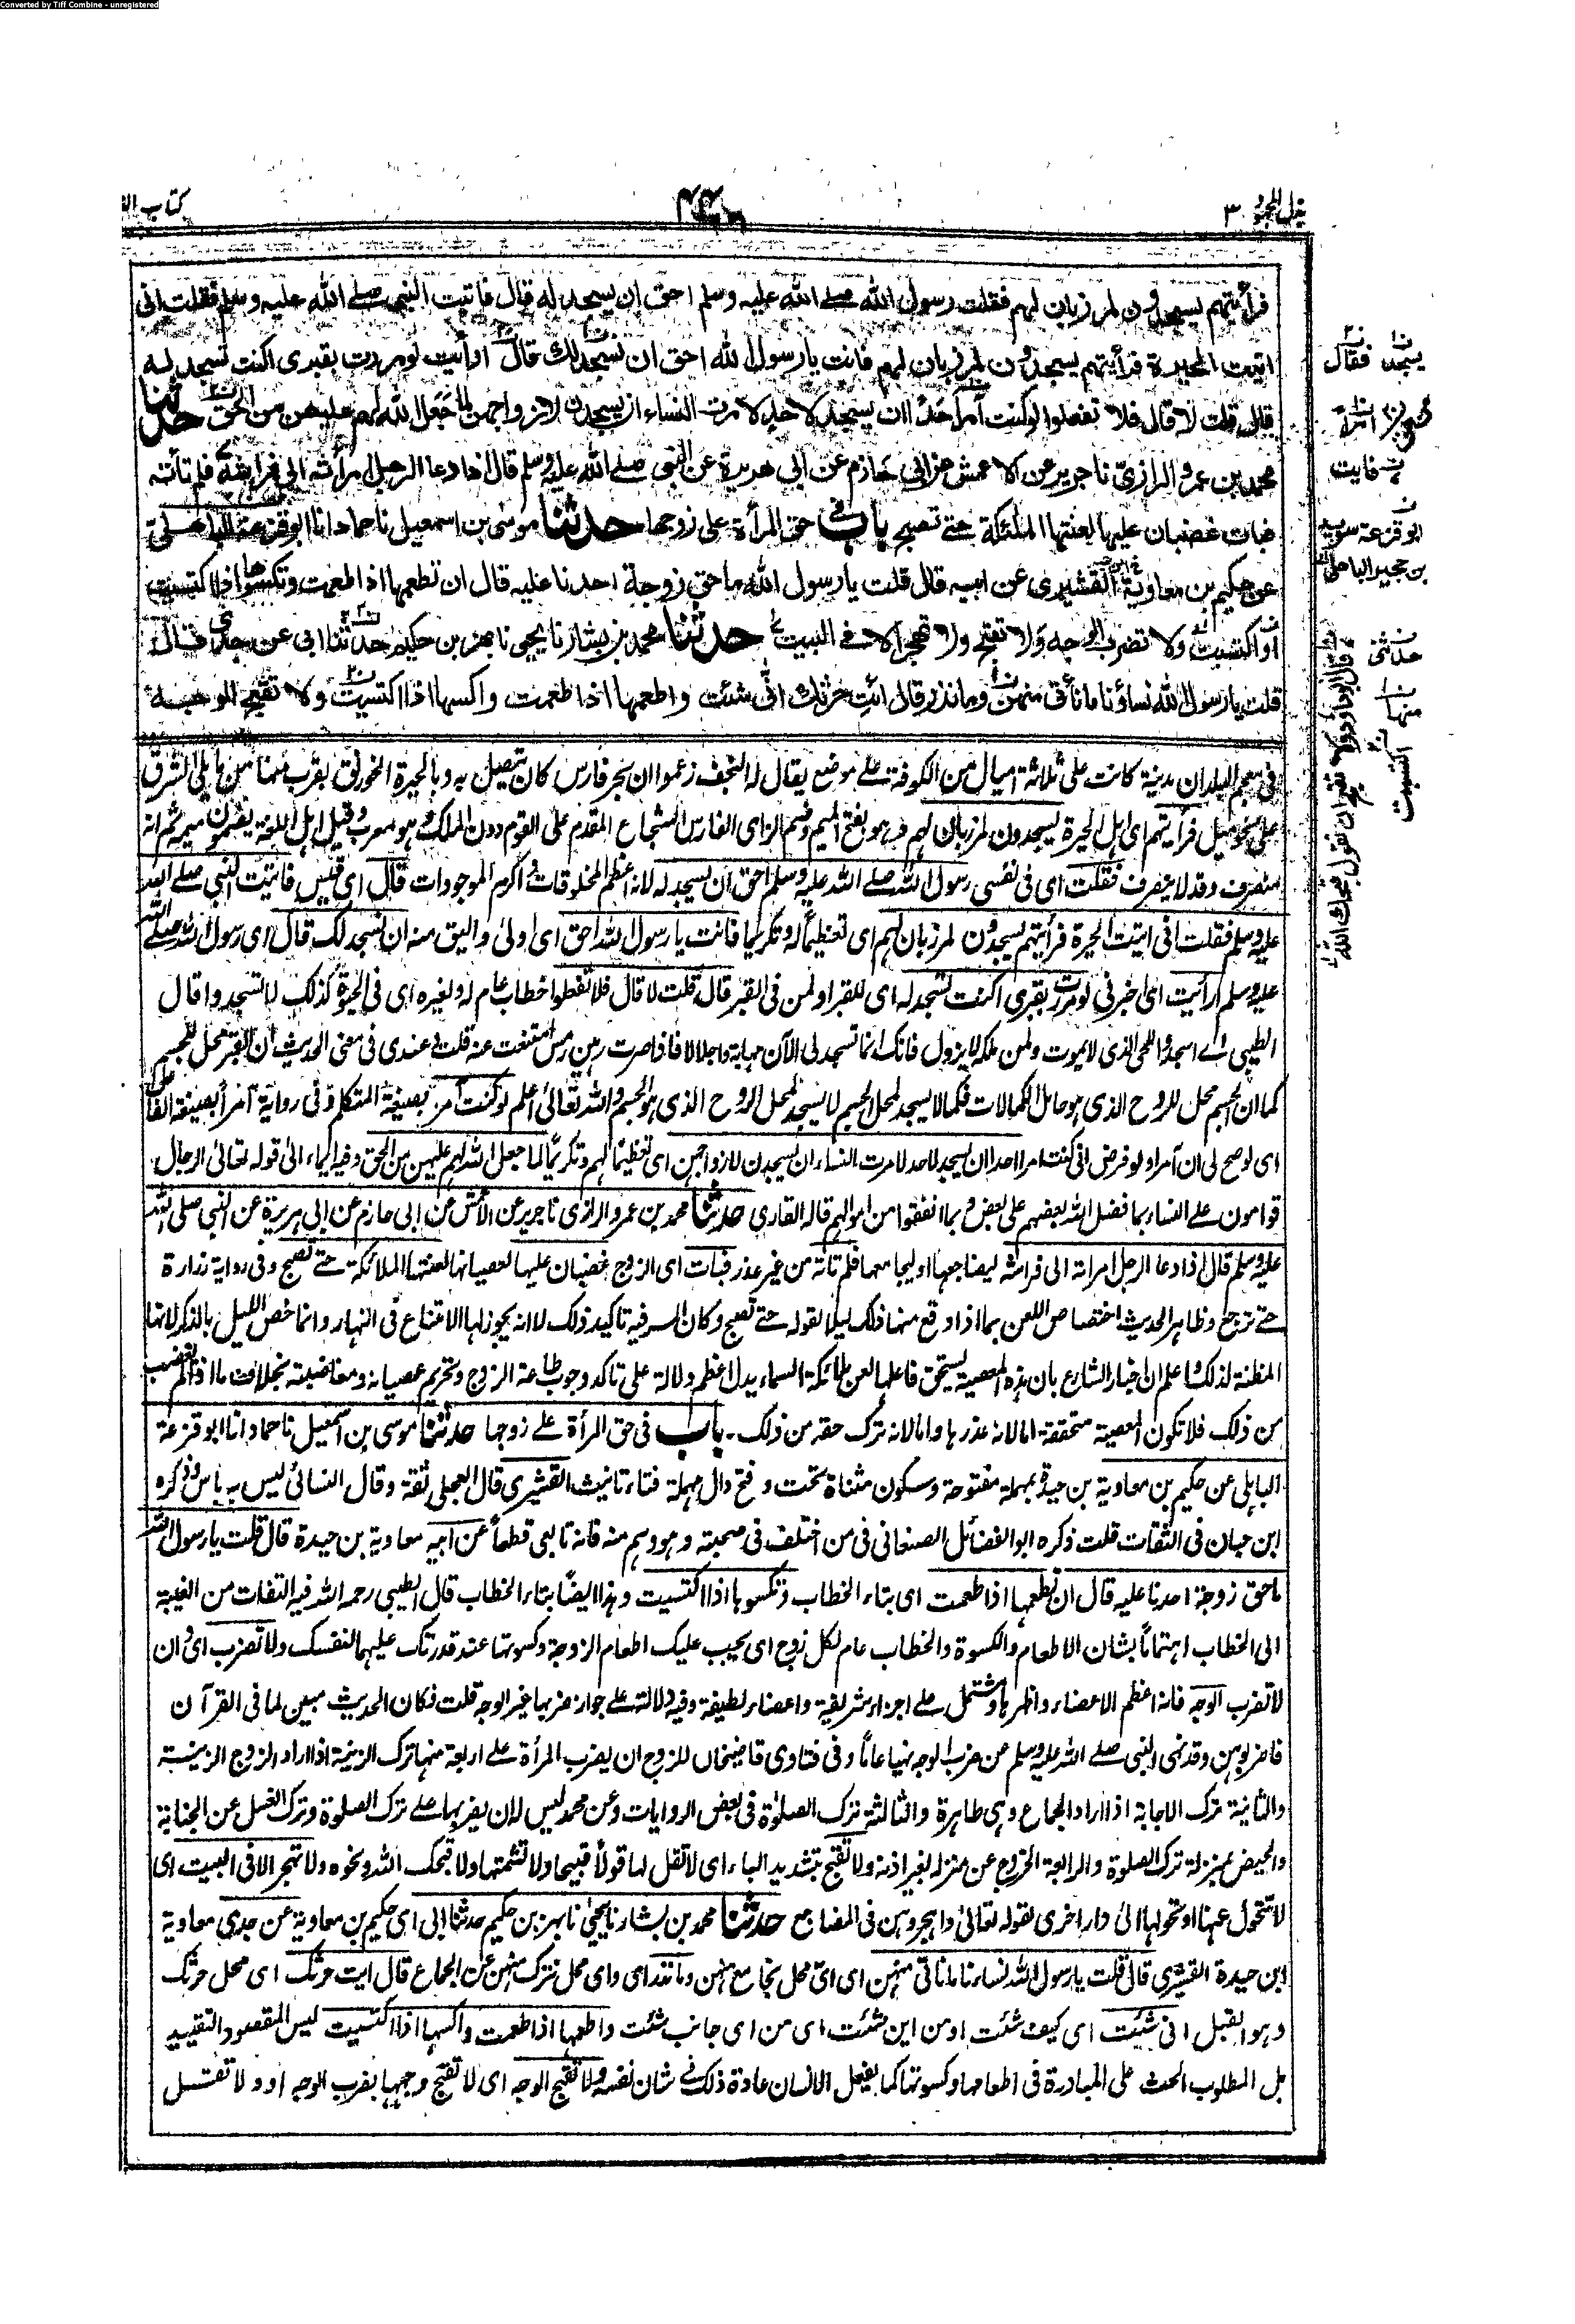 Converted by Tiff Combine - unregistered
بذل المجهود ٣
كتاب الن
فرأيتهم يسجدون لمرزبان لهم فقلت رسول الله صلے الله عليه وسلم احق ان يسجد له قال فاتيت النبي صلے الله عليه وسلم فقلت انى
اتيت الحيرة فرأيتهم يسجدون لمرزبان لهم فانت يارسول الله احق ان نسجد لك قال أرأيت لو مررت بقبرى اكنت تسجد له
قال قلت لا قال فلا تفعلوا لو كنت آمرا احدًا ان يسجد لاحد لامرت النساء ان يسجدن لازواجهن لما جعل الله لهم عليهن من الحق حدثنا
محمد بن عمرو الرازىّ نا جرير عن الاعمش عن ابى حازم عن ابى هريرة عن النبى صلے الله عليه وسلم قال اذا دعا الرجل امرأته الى فراشه فلم تأته
فبات غضبان عليها لعنتها الملئكة حتى تصبح باب فى حق المرأة على زوجها حدثنا موسى بن اسمعيل نا حماد انا ابو قزعة الباهلىّ
عن حكيم بن معاوية القشيرى عن ابيه قال قلت يارسول الله ما حق زوجة احدنا عليه قال ان تطعمها اذا طعمت وتكسوها اذا اكتسيت
أو اكتسبت ولا تضرب الوجه ولا تقبح ولا تهجر الا فى البيت حدثنا محمد بن بشار نا يحيى نا بهز بن حكيم حدثنا ابى عن جدى قال
قلت يارسول الله نساؤنا ما نأتى منهن وما نذر قال ائت حرثك انّى شئت واطعمها اذا طعمت واكسها اذا اكتسيت ولا تقبح الوجه
يسجد فقال
فانت
ابو قزعة سويد
بن حجير الباهلى
حدثنى
منها
اكتسبت
قال ابو داود ولا تقبح ان تقول قبحك الله
فى معجم البلدان مدينة كانت على ثلاثة اميال من الكوفة على موضع يقال له النجف زعموا ان بحر فارس كان يتصل به وبالحيرة الخورنق بقرب منها مما يلى الشرق
على نحو ميل فرأيتهم اى اهل الحيرة يسجدون لمرزبان لهم هو بفتح الميم وضم الزاى الفارس الشجاع المقدم على القوم دون الملك وهو معرب وقيل اهل اللغة يضمون ميمه ثم انه
منصرف وقد لا ينصرف فقلت اى فى نفسى رسول الله صلے الله عليه وسلم احق ان يسجد له لانه اعظم المخلوقات واكرم الموجودات قال اى قيس فاتيت النبي صلے الله
عليه وسلم فقلت انى اتيت الحيرة فرأيتهم يسجدون لمرزبان لهم اى تعظيمًا له وتكريما فانت يا رسول الله احق اى اولى واليق منه ان نسجد لك قال اى رسول الله صلے
عليه وسلم أرأيت اى اخبرنى لو مررت بقبرى اكنت تسجد له اى للقبر او لمن فى القبر قال قلت لا قال فلا تفعلوا خطاب عام له ولغيره اى فى الحيوة كذلك لا تسجدوا قال
الطيبى اے اسجدوا للحى الذى لا يموت ولمن ملكه لا يزول فانك انما تسجد لى الآن مهابة واجلالا فاذا صرت رهين رمس امتنعت عنه قلت وعندى فى معنى الحديث ان القبر محل للجسم
كما ان الجسم محل للروح الذى هو حامل الكمالات فكما لا يسجد لمحل الجسم لا يسجد لمحل الروح الذى هو الجسم والله تعالى اعلم لو كنت آمر بصيغة المتكلم وفى رواية آمرا بصيغة الفاعل
اى لو صح لى ان آمر او لو فرض انى كنت آمرا احدا ان يسجد لاحد لامرت النساء ان يسجدن لازواجهن اى تعظيمًا لهم وتكريمًا لما جعل الله لهم عليهن من الحق وفيه ايماء الى قوله تعالى الرجال
قوامون على النساء بما فضل الله بعضهم على بعض وبما انفقوا من اموالهم قاله القارى حدثنا محمد بن عمرو الرازى نا جرير عن الاعمش عن ابى حازم عن ابى هريرة عن النبى صلى الله
عليه وسلم قال اذا دعا الرجل امرأته الى فراشه ليضاجعها او ليجامعها فلم تأته من غير عذر فبات اى الزوج غضبان عليها لعصيانها لعنتها الملائكة حتے تصبح وفى رواية زرارة
حتے ترجع وظاهر الحديث اختصاص اللعن بما اذا وقع منها ذلك ليلا لقوله حتے تصبح وكان السر فيه تاكيد ذلك لا انه يجوز لها الامتناع فى النهار وانما خص الليل بالذكر لانها
المظنة لذلك واعلم ان اخبار الشارع بان هذه المعصية يستحق فاعلها لعن ملائكة السماء يدل اعظم دلالة على تاكد وجوب طاعة الزوج وتحريم عصيانه ومغاضبته بخلاف ما اذا لم يغضب
من ذلك فلا تكون المعصية متحققة اما لانه عذرها واما لانه ترك حقه من ذلك۔ باب فى حق المرأة على زوجها حدثنا موسى بن اسمعيل نا حماد انا ابو قزعة
الباهلى عن حكيم بن معاوية بن حيدة بمهملة مفتوحة وسكون مثناة تحت وفتح دال مهملة فتاء تانيث القشيرى قال العجلى ثقة وقال النسائى ليس به باس وذكره
ابن حبان فى الثقات قلت ذكره ابو الفضائل الصنعانى فى من اختلف فى صحبته وهو وهم منه فانه تابعى قطعاً عن ابيه معاوية بن حيدة قال قلت يا رسول الله
ما حق زوجة احدنا عليه قال ان تطعمها اذا طعمت اى بتاء الخطاب وتكسوها اذا اكتسيت وهذا ايضًا بتاء الخطاب قال الطيبى رحمه الله فيه التفات من الغيبة
الى الخطاب اهتمامًا بشان الاطعام والكسوة والخطاب عام لكل زوج اى يجب عليك اطعام الزوجة وكسوتها عند قدرتك عليهما لنفسك ولا تضرب اى وان
لا تضرب الوجه فانه اعظم الاعضاء واظهرها ومشتمل على اجزاء شريفة واعضاء لطيفة وفيه دلالة على جواز ضربها غير الوجه قلت فكان الحديث مبين لما فى القرآن
فاضربوهن وقد نهى النبى صلے الله عليه وسلم عن ضرب الوجه نهيا عامًا وفى فتاوى قاضيخان للزوج ان يضرب المرأة على اربعة منها ترك الزينة اذا اراد الزوج الزينة
والثانية ترك الاجابة اذا اراد الجماع وهى طاهرة والثالثة ترك الصلوٰة فى بعض الروايات وعن محمد ليس له ان يضربها على ترك الصلوة وترك الغسل عن الجنابة
والحيض بمنزلة ترك الصلوة والرابعة الخروج عن منزله بغير اذنه ولا تقبح بتشديد الباء اى لا تقل لها قولاً قبيحا ولا تشتمها ولا قبحك الله ونحوه ولا تهجر الا فى البيت اى
لا تتحول عنها او تحولها الى دار اخرى لقوله تعالى واهجروهن فى المضاجع حدثنا محمد بن بشار نا يحيٰى نا بهز بن حكيم حدثنا ابى اى حكيم بن معاوية عن جدى معاوية
ابن حيدة القشيرى قال قلت يا رسول الله نساءنا ما ناتى منهن اى اىّ محل نجامع منهن وما نذر اى واى محل نترك منهن عن الجماع قال ايت حرثك اى محل حرثك
وهو القبل انى شئت اى كيف شئت او من اين شئت اى من اى جانب شئت واطعمها اذا طعمت واكسها اذا اكتسيت ليس المقصود التقييد
بل المطلوب الحث على المبادرة فى اطعامها وكسوتها كما يفعل الانسان عادة ذلك فى شان نفسه ولا تقبح الوجه اى لا تقبح وجهها بضرب الوجه او ولا تقل